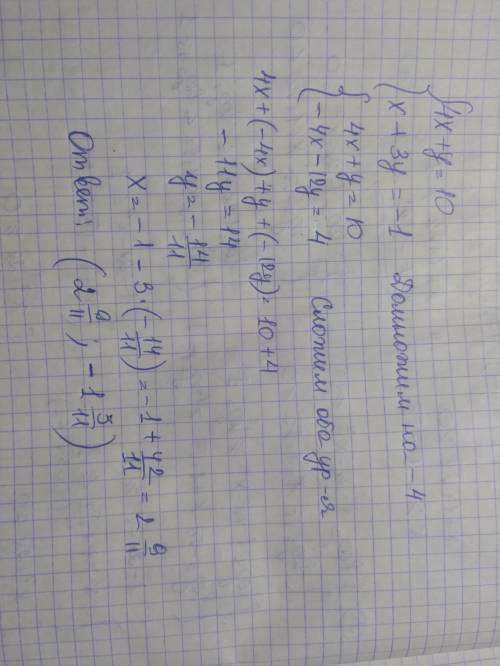 {4x+y=10
{x+3y=-1 Домножим на -4
{4x+y=10
{-4x-12y=4 Сложим оба ур-я
4x+(-4x)+y+(-12y)=10+4
-11y=14
y=-14/11
x=-1-3·(-14/11)=-1+42/11=2 9/11
Ответ: (2 9/11; -1 3/11)